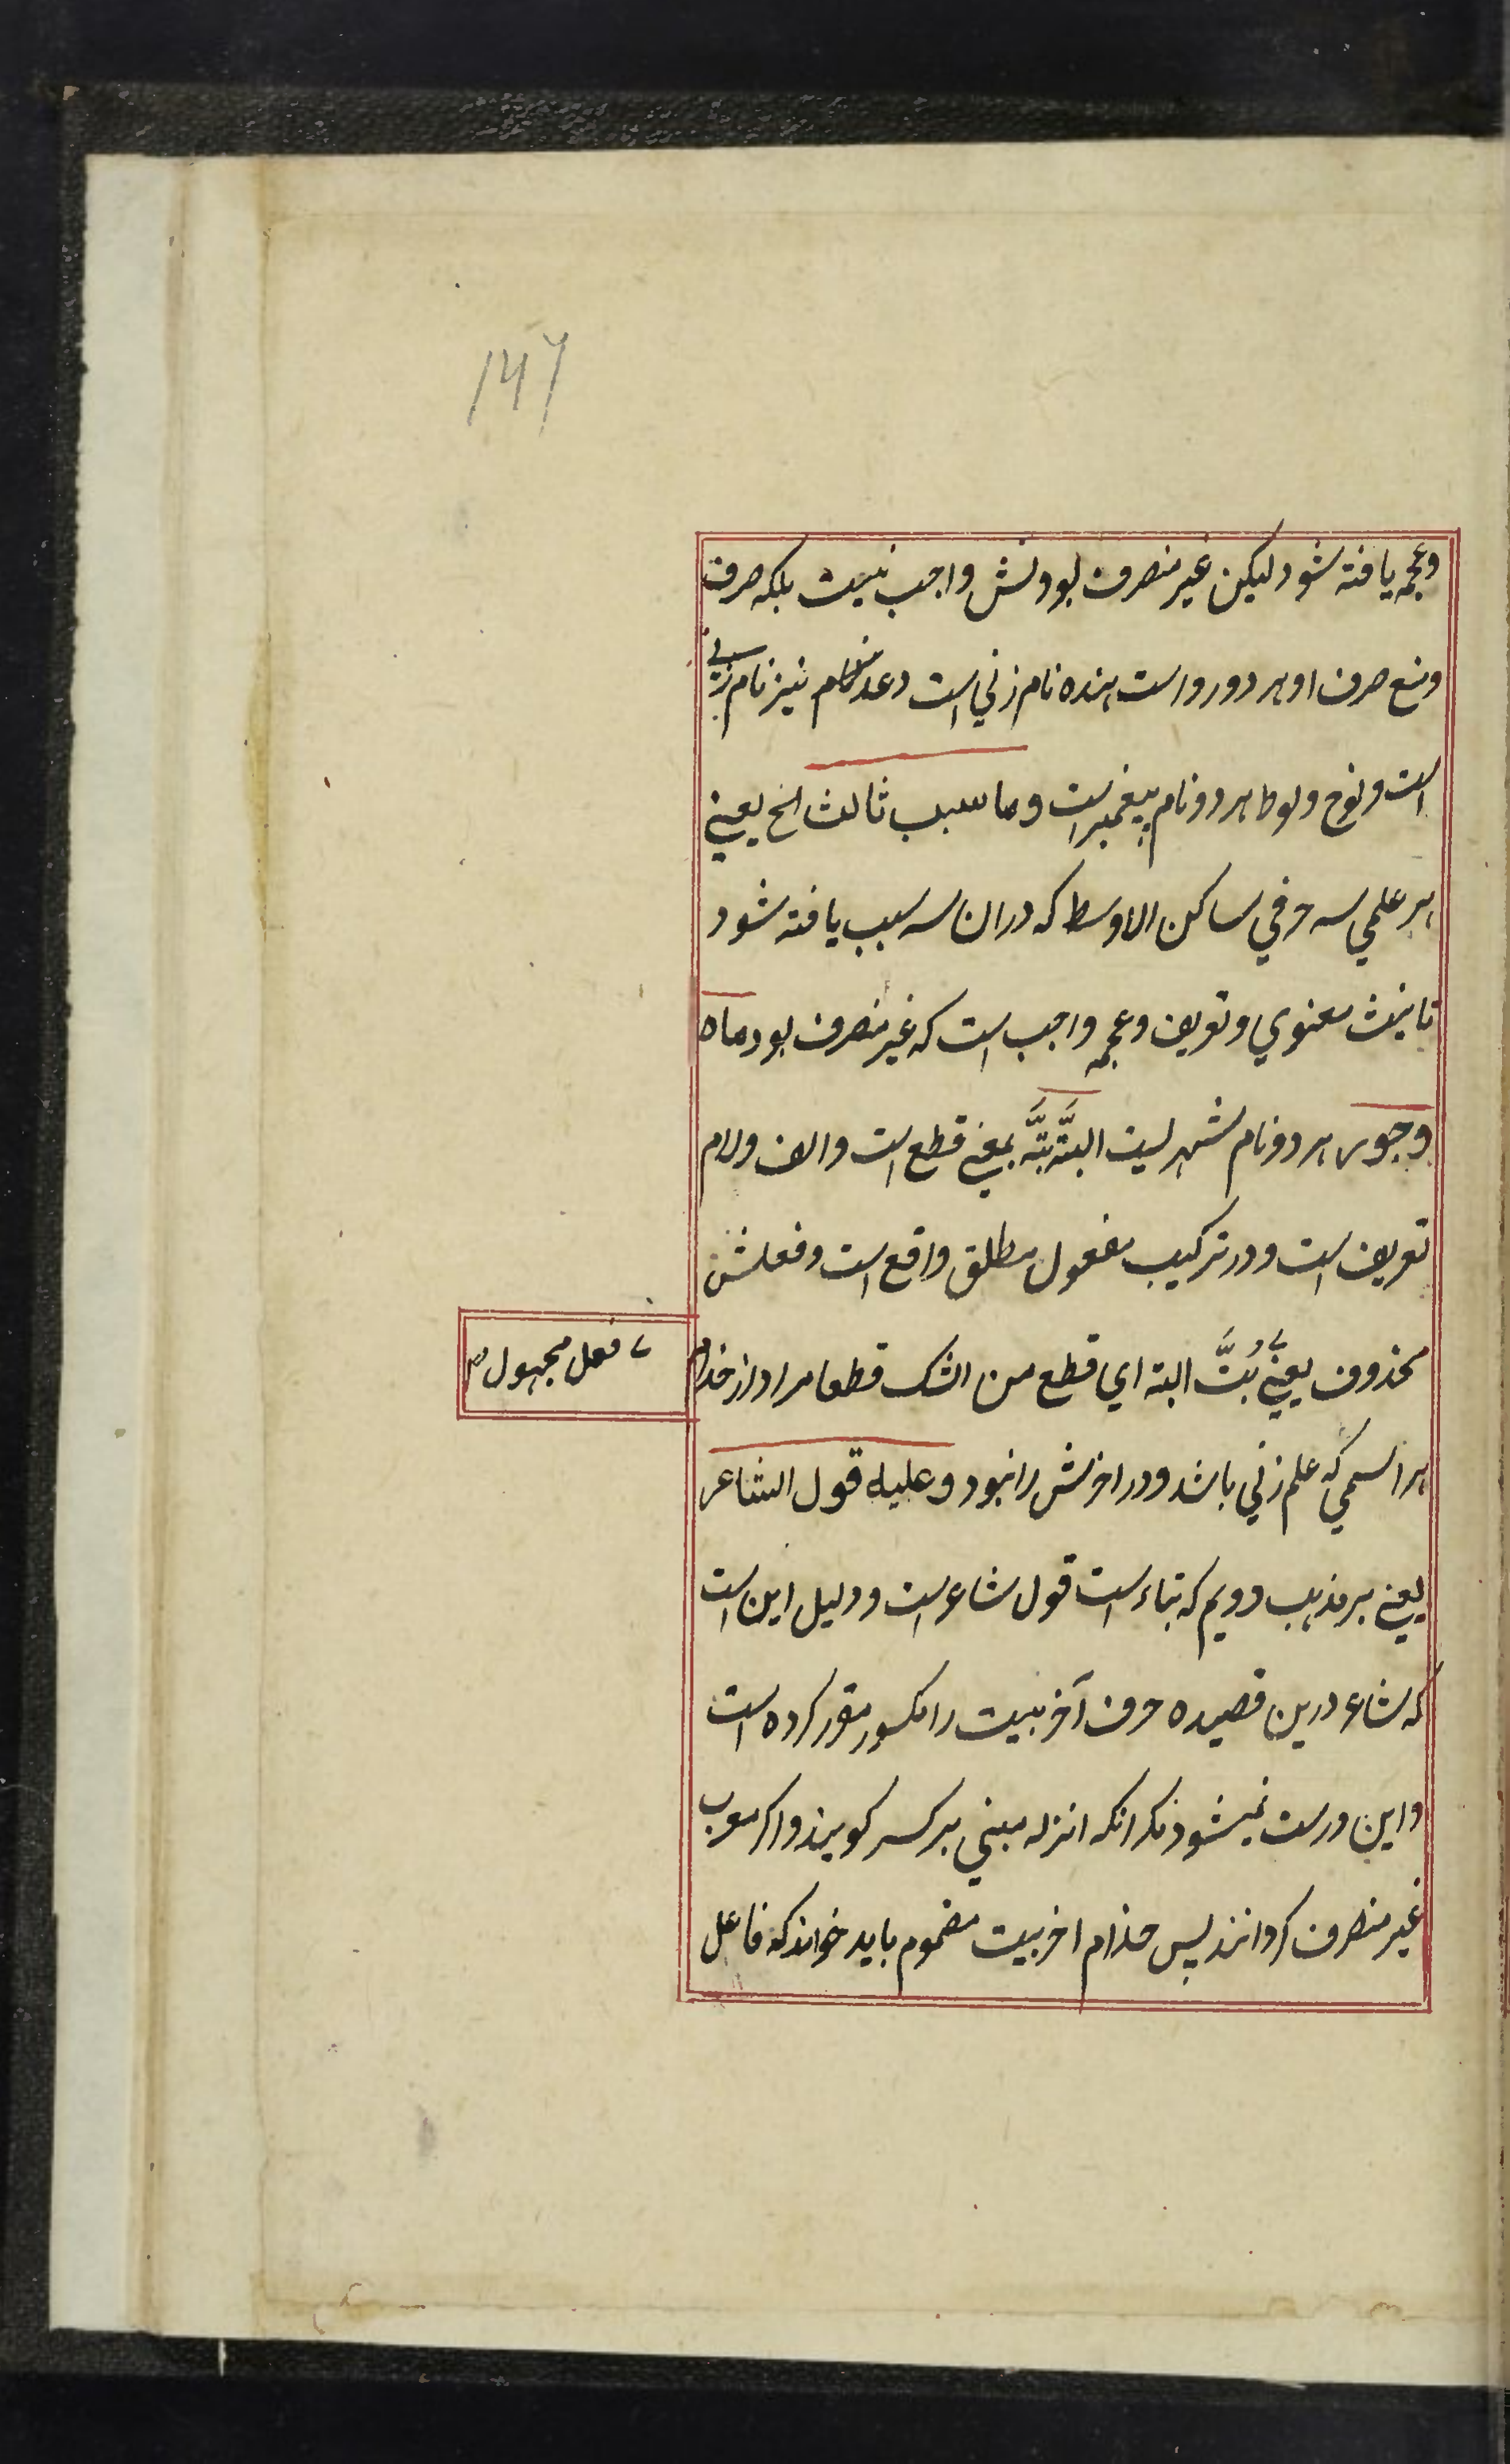 ۱۴۷
وعجمه یافته شود لیکن غیر منصرف بودنش واجب نیست بلکه صرف
ومنع صرف او هر دو رواست هنده نام زنی است دعد نیز نام زنی
است ونوح ولوط هر دو نام پیغمبر است وما سبب ثالث الخ یعنی
هر علمی سه حرفی ساکن الاوسط که دران سه سبب یافته شود
تانیث معنوي وتعریف وعجمه واجب است که غیر منصرف بود ماه
وجور هر دو نام شهر لیست البتَّة بَتَّه بمعنی قطع است والف ولام
تعریف است ودر ترکیب مفعول مطلق واقع است وفعلش
محذوف یعنی بُتَّ البته اي قطع من الشک قطعا مراد از حذام
فعل مجهول
هر اسمی که علم زنی باشد ودر اخرش را نبود وعلیه قول الشاعر
یعنی بر مذهب دویم که بناء است قول شاعر است ودلیل این است
که شاعر درین قصیده حرف آخر بیت را مکسور مقرر کرده است
واین درست نمیشود مکر انکه انرا مبنی بر کسر کویند واکر معرب
غیر منصرف کردانند پس حذام اخر بیت مضموم باید خواند که فاعل